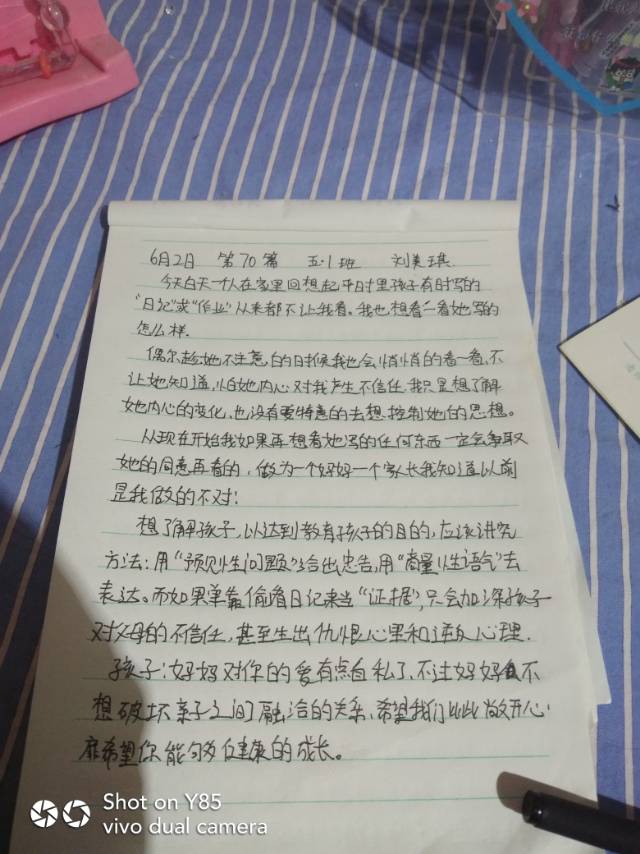 6月2日 第70篇 五.1班 刘美琪
今天白天一个人在家里回想起平时里孩子有时写的
“日记”或“作业”从来都不让我看。我也想看一看她写的
怎么样.
偶尔趁她不注意的时候我也会悄悄的看一看,不
让她知道,怕她内心对我产生不信任.我只是想了解
她内心的变化,也没有要特意的去想控制她的思想。
从现在开始我如果再想看她写的任何东西一定会争取
她的同意再看的,做为一个妈妈一个家长我知道以前
是我做的不对!
想了解孩子,以达到教育孩子的目的,应该讲究
方法:用“预见性问题”给出忠告,用“商量性语气”去
表达。而如果单靠偷看日记来当“证据”,只会加深孩子
对父母的不信任,甚至生出仇恨心里和逆反心理.
孩子:妈妈对你的爱有点自私了,不过妈妈不
想破坏亲子之间融洽的关系,希望我们彼此敞开心
扉希望你能够健康的成长。
Shot on Y85
vivo dual camera